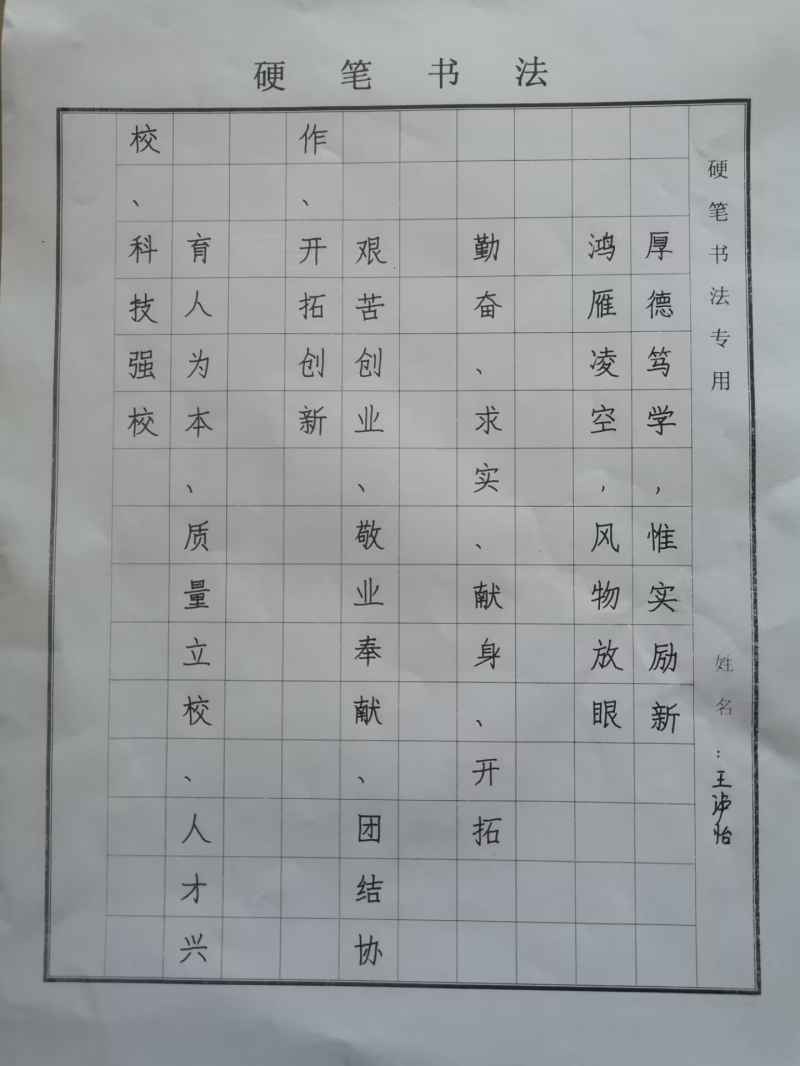 硬笔书法
硬笔书法专用
姓名：王
怡
厚德笃学，惟实励新
鸿雁凌空，风物放眼
勤奋、求实、献身、开拓
艰苦创业、敬业奉献、团结协
作、开拓创新
育人为本、质量立校、人才兴
校、科技强校